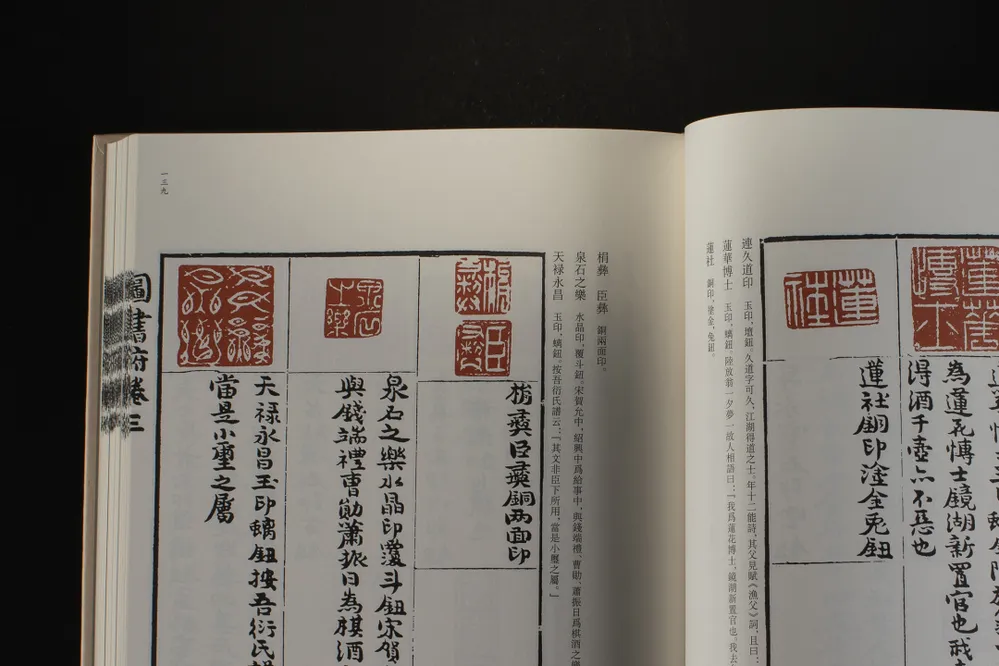 為蓮花博士鏡湖新置官也我
得酒千壺亦不惡也
蓮社
蓮社銅印塗金兎鈕
連久道印 玉印,壇鈕。久道字可久,江湖得道之士。年十二能詩,其父見賦《漁父》詞,且曰:
蓮華博士 玉印,螭鈕。陸放翁一夕夢一故人相語曰:「我爲蓮花博士,鏡湖新置官也。我去
蓮社 銅印,塗金,兔鈕。
彝 臣彝 銅兩面印。
泉石之樂 水晶印,覆斗鈕。宋賀允中,紹興中爲給事中,與錢端禮、曹勛、蕭振日爲棋酒之樂
天禄永昌 玉印,螭鈕。按吾衍氏譜云:「其文非臣下所用,當是小璽之屬。」
彝臣彝銅两面印
泉石之樂
泉石之樂水晶印覆斗鈕宋賀
與錢端禮曹勛蕭振日為棋酒
天禄永昌玉印螭鈕按吾衍氏譜
當是小璽之屬
圖書府卷三
一三九